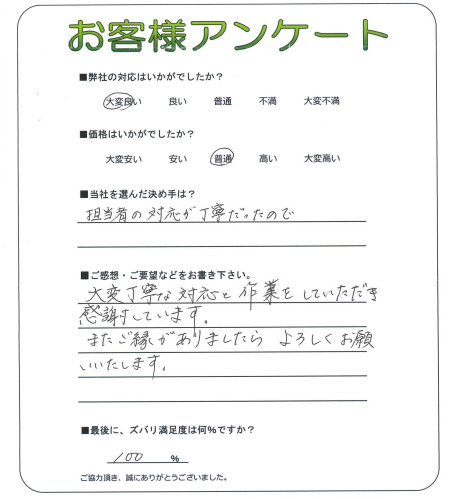 お客様アンケート
■弊社の対応はいかがでしたか？
大変良い 良い 普通 不満 大変不満
■価格はいかがでしたか？
大変安い 安い 普通 高い 大変高い
■当社を選んだ決め手は？
担当者の対応が丁寧だったので
■ご感想・ご要望などをお書き下さい。
大変丁寧な対応と作業をしていただき
感謝しています。
またご縁がありましたら よろしくお願
いいたします。
■最後に、ズバリ満足度は何％ですか？
100 ％
ご協力頂き、誠にありがとうございました。